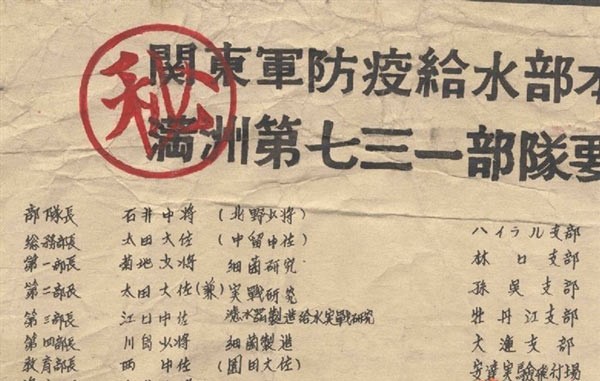 秘
関東軍防疫給水部本
満洲第七三一部隊要
部隊長 石井中将 (北野少将) ハイラル支部
総務部長 太田大佐 (中留中佐) 林口支部
第一部長 菊地少将 細菌研究 孫呉支部
第二部長 太田大佐(兼) 実戦研究 牡丹江支部
第三部長 江口中佐 濾水器製造給水実戦研究 大連支部
第四部長 川島少将 細菌製造 安達実験飛行場
教育部長 西中佐 (園田大佐)